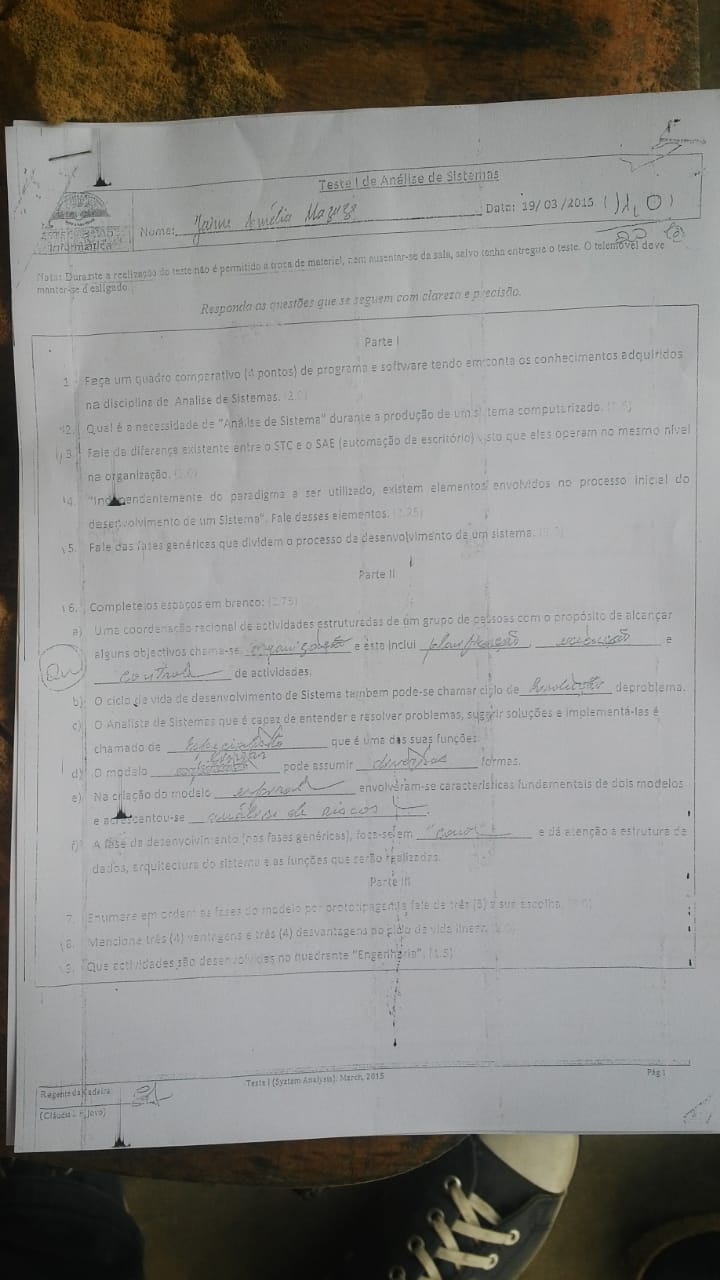 Teste I de Análise de Sistemas
Informática
Nome: Data: 19/03/2015
Nota: Durante a realização do teste não é permitido a troca de material, nem ausentar-se da sala, salvo tenha entregue o teste. O telemóvel deve
manter-se desligado
Responda as questões que se seguem com clareza e precisão.
Parte I
1. Faça um quadro comparativo (4 pontos) de programa e software tendo em conta os conhecimentos adquiridos
na disciplina de Analise de Sistemas.
2. Qual é a necessidade de "Análise de Sistema" durante a produção de um sistema computarizado.
3. Fale da diferença existente entre o STC e o SAE (automação de escritório) visto que eles operam no mesmo nível
na organização.
4. "Independentemente do paradigma a ser utilizado, existem elementos envolvidos no processo inicial do
desenvolvimento de um Sistema". Fale desses elementos. (2.25)
5. Fale das fases genéricas que dividem o processo de desenvolvimento de um sistema.
Parte II
6. Complete os espaços em branco: (2.75)
a) Uma coordenação racional de actividades estruturadas de um grupo de pessoas com o propósito de alcançar
alguns objectivos chama-se organização e esta inclui planificação, execução e
control de actividades.
b) O ciclo de vida de desenvolvimento de Sistema tambem pode-se chamar ciclo de deproblema.
c) O Analista de Sistemas que é capaz de entender e resolver problemas, sugerir soluções e implementá-las é
chamado de que é uma das suas funções.
d) O modelo pode assumir diversas formas.
e) Na criação do modelo espiral envolveram-se características fundamentais de dois modelos
e acrescentou-se análise de riscos.
f) A fase de desenvolvimento (nas fases genéricas), foca-se em "como" e dá atenção a estrutura de
dados, arquitectura do sistema e as funções que serão realizadas.
Parte III
7. Enumere em ordem as fases do modelo por prototipagem e fale de três (3) a sua escolha.
8. Mencione três (4) vantagens e três (4) desvantagens no ciclo de vida linear.
9. Que actividades são desenvolvidas no quadrante "Engenharia". (1.5)
Regente da Cadeira
Teste I (System Analysis): March, 2015
Pág 1